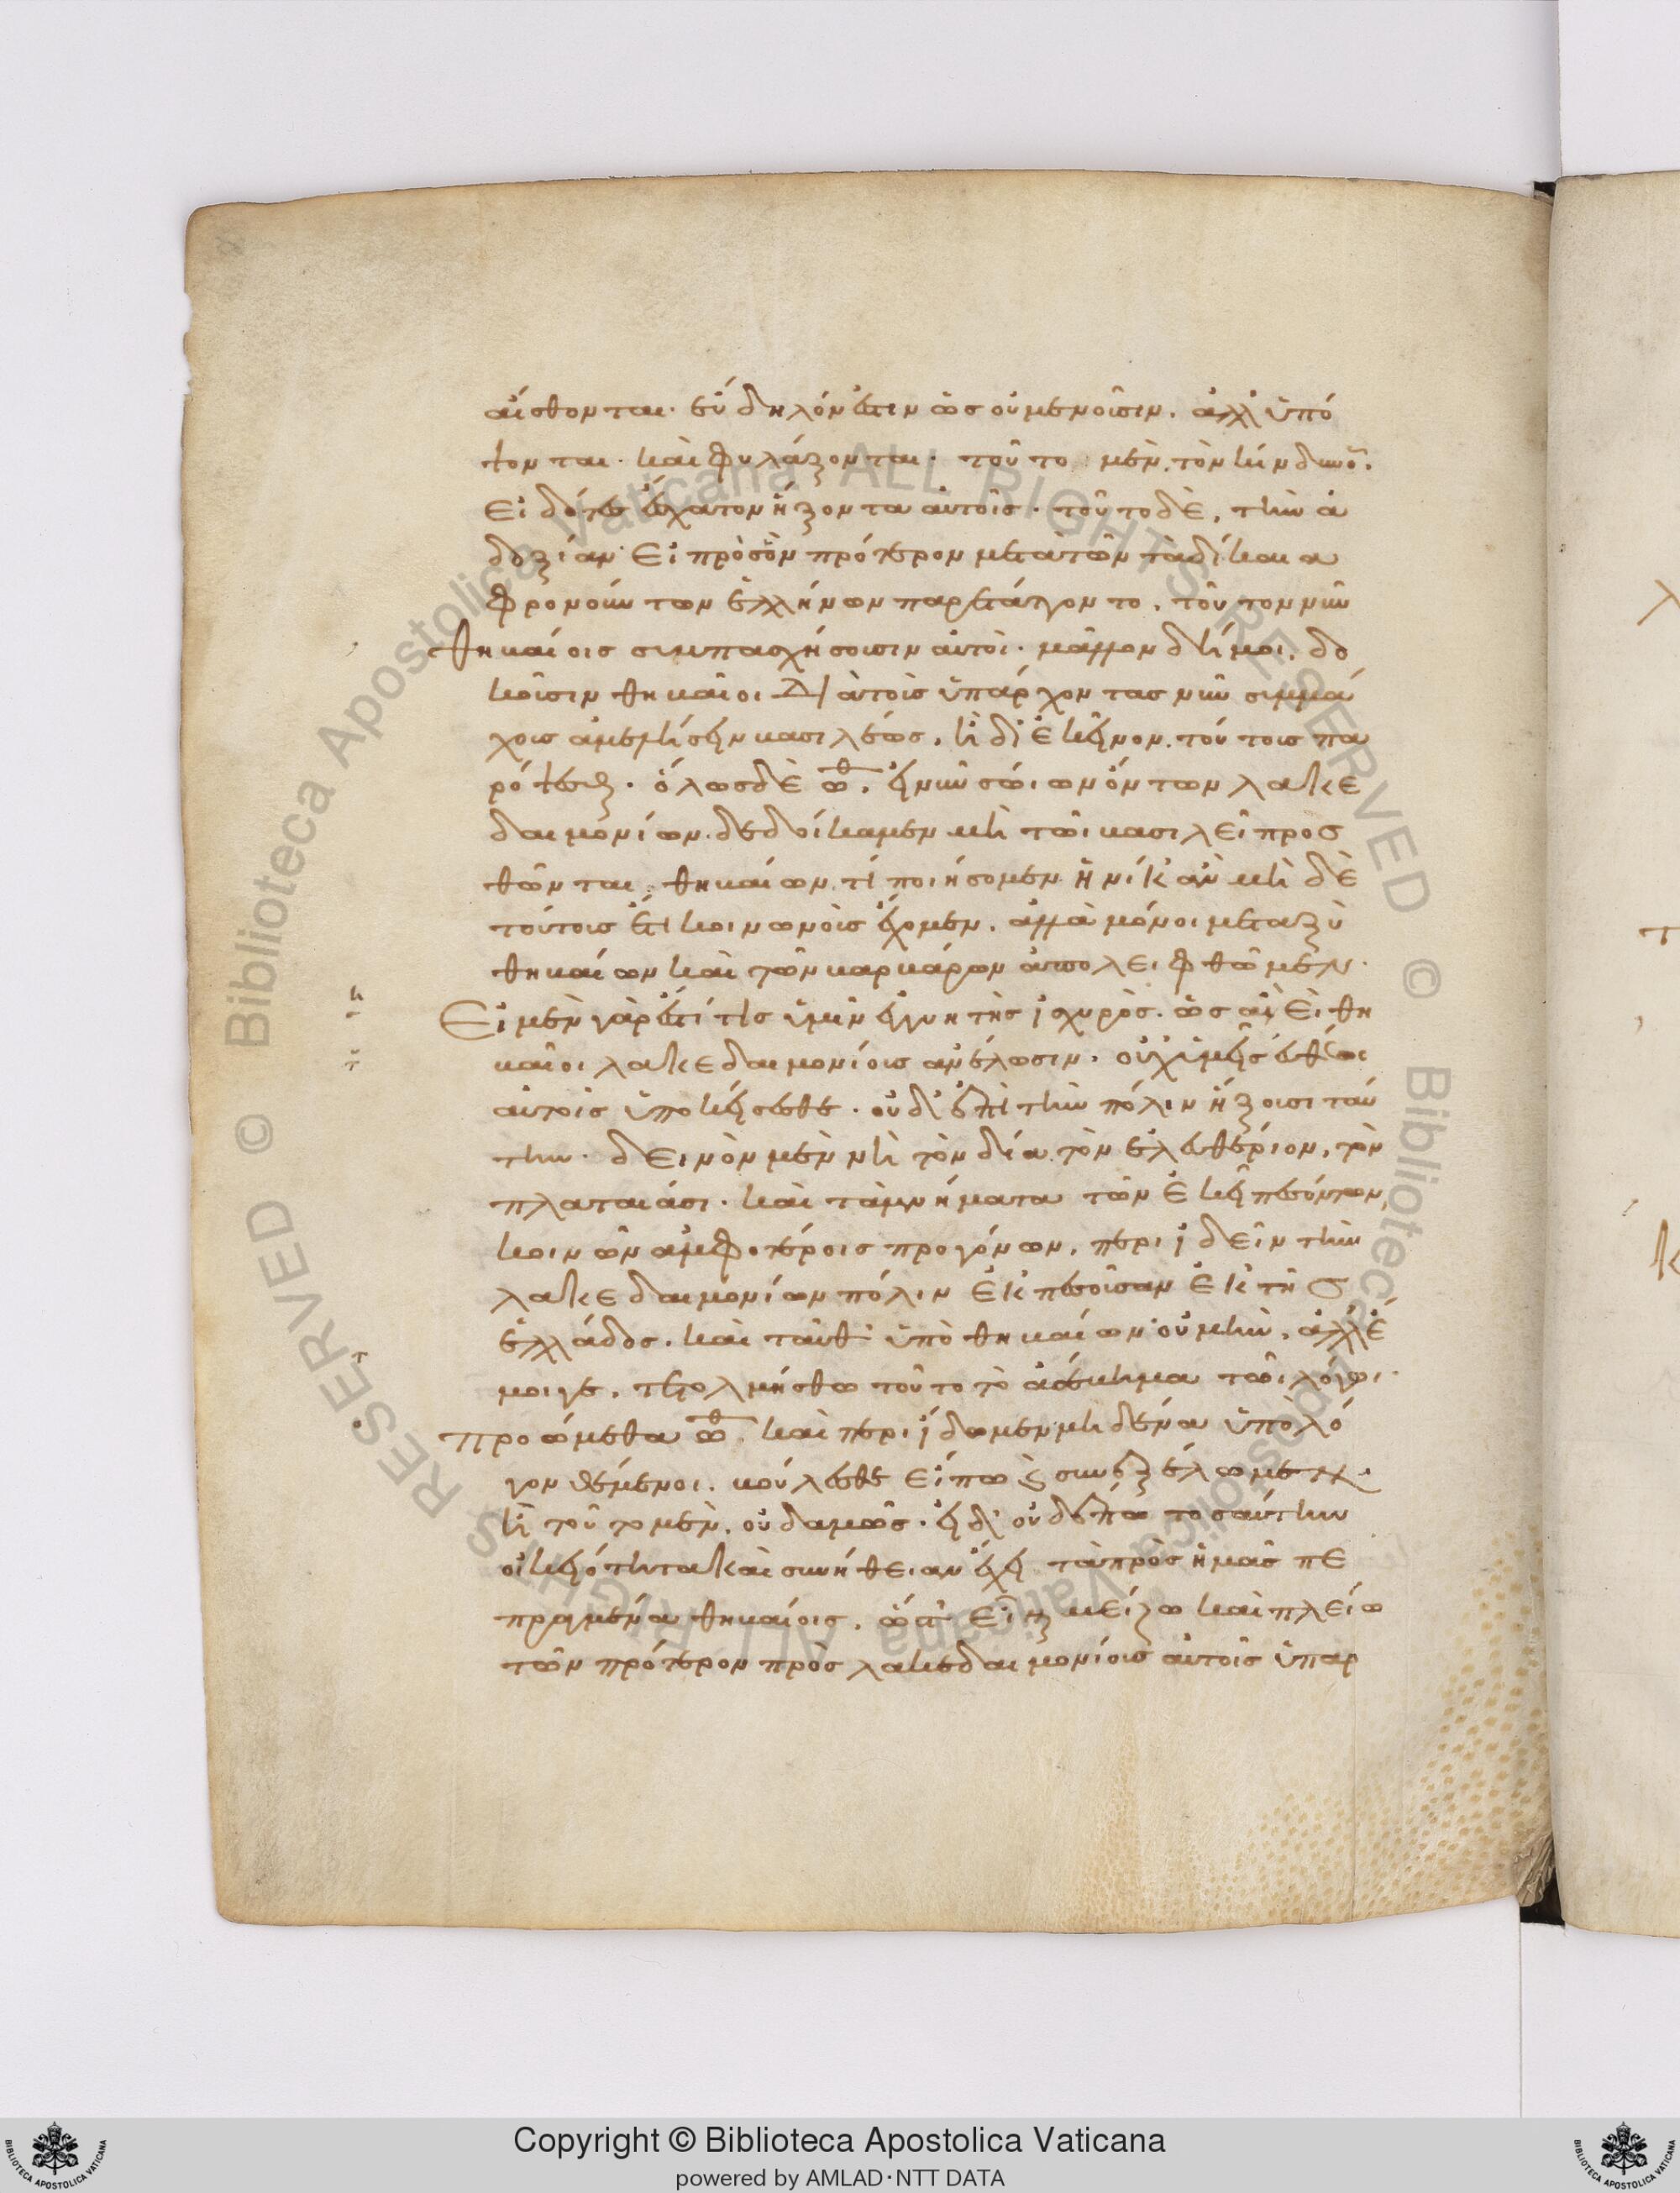 αίσθονται· εὔδηλόν ἐστιν ὡς οὐ μενοῦσιν. ἀλλ' ὑπό
πτονται· καὶ φυλάξονται· τοῦτο μὲν, τὸν κίνδυνον.
εἰδότες ἔσχατον ἥξοντα αὐτοῖς· τοῦτο δὲ, τὴν ἀ
δοξίαν· εἰ πρὸς ὃν πρότερον μετὰ τῶν τὰ δίκαια
φρονούντων ἑλλήνων παρετάττοντο, τοῦτον νῦν
θηβαίοις συμπασχήσουσιν αὐτοί· μᾶλλον δή μοι, δο
κοῦσιν θηβαῖοι δι' αὐτοὺς ὑπάρχοντας νῦν συμμά
χους ἀμελήσειν βασιλέως. ἢ δι' ἐκεῖνον τούτους πα
ρόψεσθαι. ὅλως δὲ
δαιμονίων δεδοίκαμεν μὴ τῶι βασιλεῖ προσ
θῶνται θηβαίων. τί ποιήσομεν ἡνίκ' ἂν μὴ δὲ
τούτους ἔτι κοινωνοὺς ἔχομεν. ἀλλὰ μόνοι μεταξὺ
θηβαίων καὶ τῶν βαρβάρων ἀπολειφθῶμεν.
Εἰ μὲν γὰρ ἐστί τις ὑμῖν ἐγγυητὴς ἰσχυρὸς. ὡς ἂν εἰ θη
βαῖοι λακεδαιμονίους ἀνέλωσιν. οὐχ ὑμεῖς εὐθέως
αὐτοῖς ὑποκείσεσθε. οὐδ' ἐπὶ τὴν πόλιν ἥξουσι ταύ
την· δεινὸν μὲν νὴ τὸν δία τὸν ἐλευθέριον, τὸν
πλαταιάσι. καὶ τὰ μνήματα τῶν ἐκεῖ πεσόντων
κοινῶν ἀμφοτέροις προγόνων, περιϊδεῖν τὴν
λακεδαιμονίων πόλιν ἐκπεσοῦσαν ἐκ τῆς
ἑλλάδος. καὶ ταῦθ' ὑπὸ θηβαίων· οὐ μὴν, ἀλλ' ἔ
μοιγε, τετολμήσθω τοῦτο τὸ ἀσέβημα τῶι λόγωι.
προώμεθα καὶ περιΐδωμεν μηδένα ὑπολό
γον θέμενοι. βούλεσθε εἴπω συνεξέλωμεν.
ἢ τοῦτο μὲν, οὐδαμῶς. εἰ δ' οὐδέπω τοσαύτην
οἰκειότητα καὶ συνήθειαν ἔχει τὰ πρὸς ἡμᾶς πε
πραγμένα θηβαίοις, ὥστ' εἶναι μείζω καὶ πλείω
τῶν πρότερον πρὸς λακεδαιμονίους αὐτοῖς ὑπαρ
Copyright © Biblioteca Apostolica Vaticana
powered by AMLAD·NTT DATA